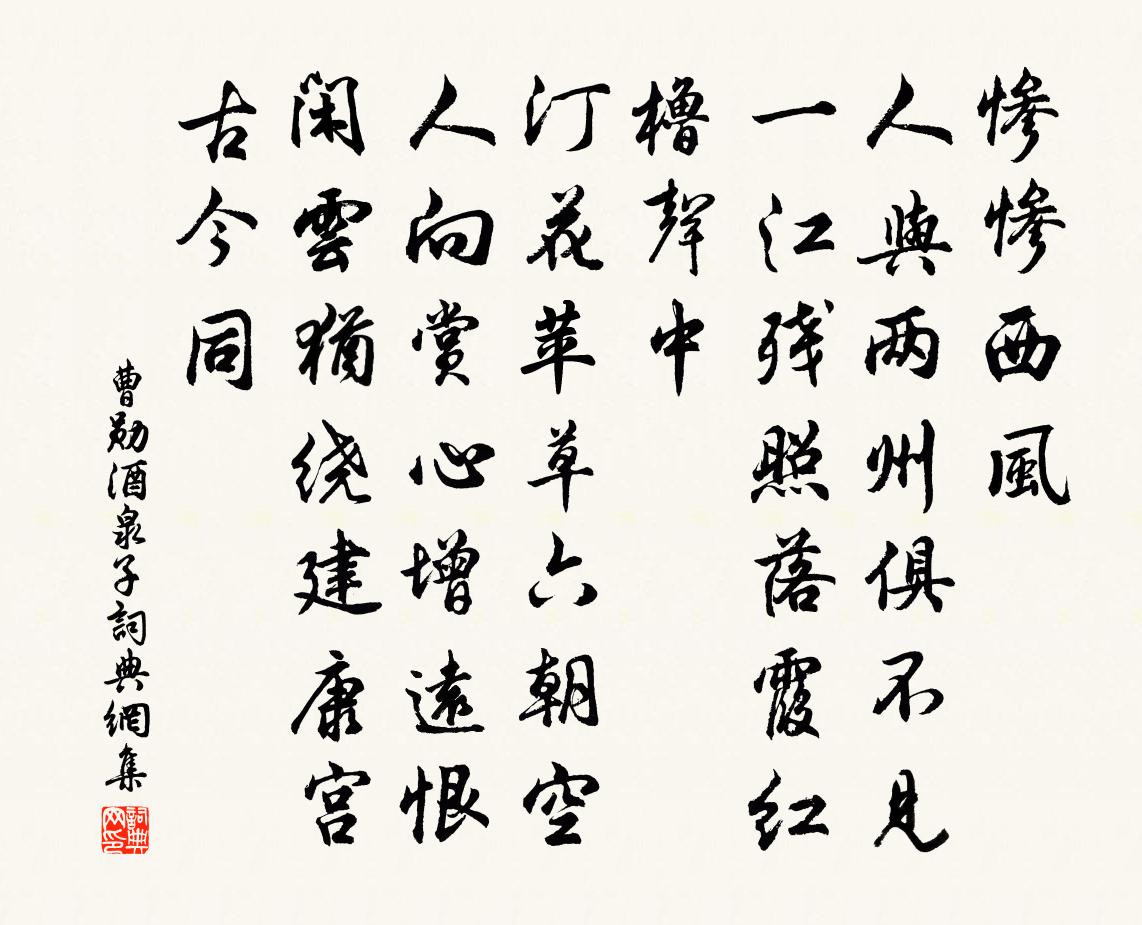 惨惨西風
人與两州俱不見
一江残照落霞红
櫓聲中
汀花苹草六朝空
人向賞心增遠恨
閑雲猶绕建康宫
古今同
曹勛酒泉子詞典網集
詞典網印